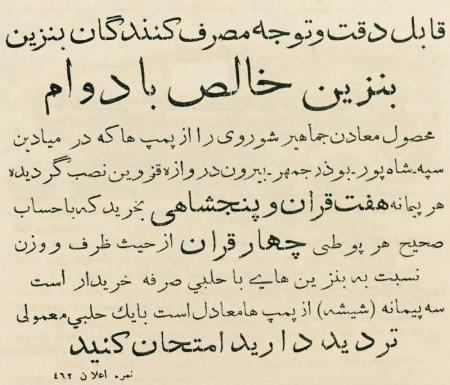 قابل دقت و توجه مصرف کنندگان بنزین
بنزین خالص بادوام
محصول معادن جماهیر شوروی را از پمپ ها که در میادین
سپه-شاه پور-بوذرجمهر-بیرون دروازه قزوین نصب گردیده
هر پیمانه هفت قران و پنجشاهی بخرید که با حساب
صحیح هر پوطی چهار قران از حیث ظرف و وزن
نسبت به بنزین هایے با حلبي صرفه خریدار است
سه پیمانه (شیشه) از پمپ ها معادل است با یك حلبي معمولی
تردید دارید امتحان کنید
نمره اعلان ٤٦٢